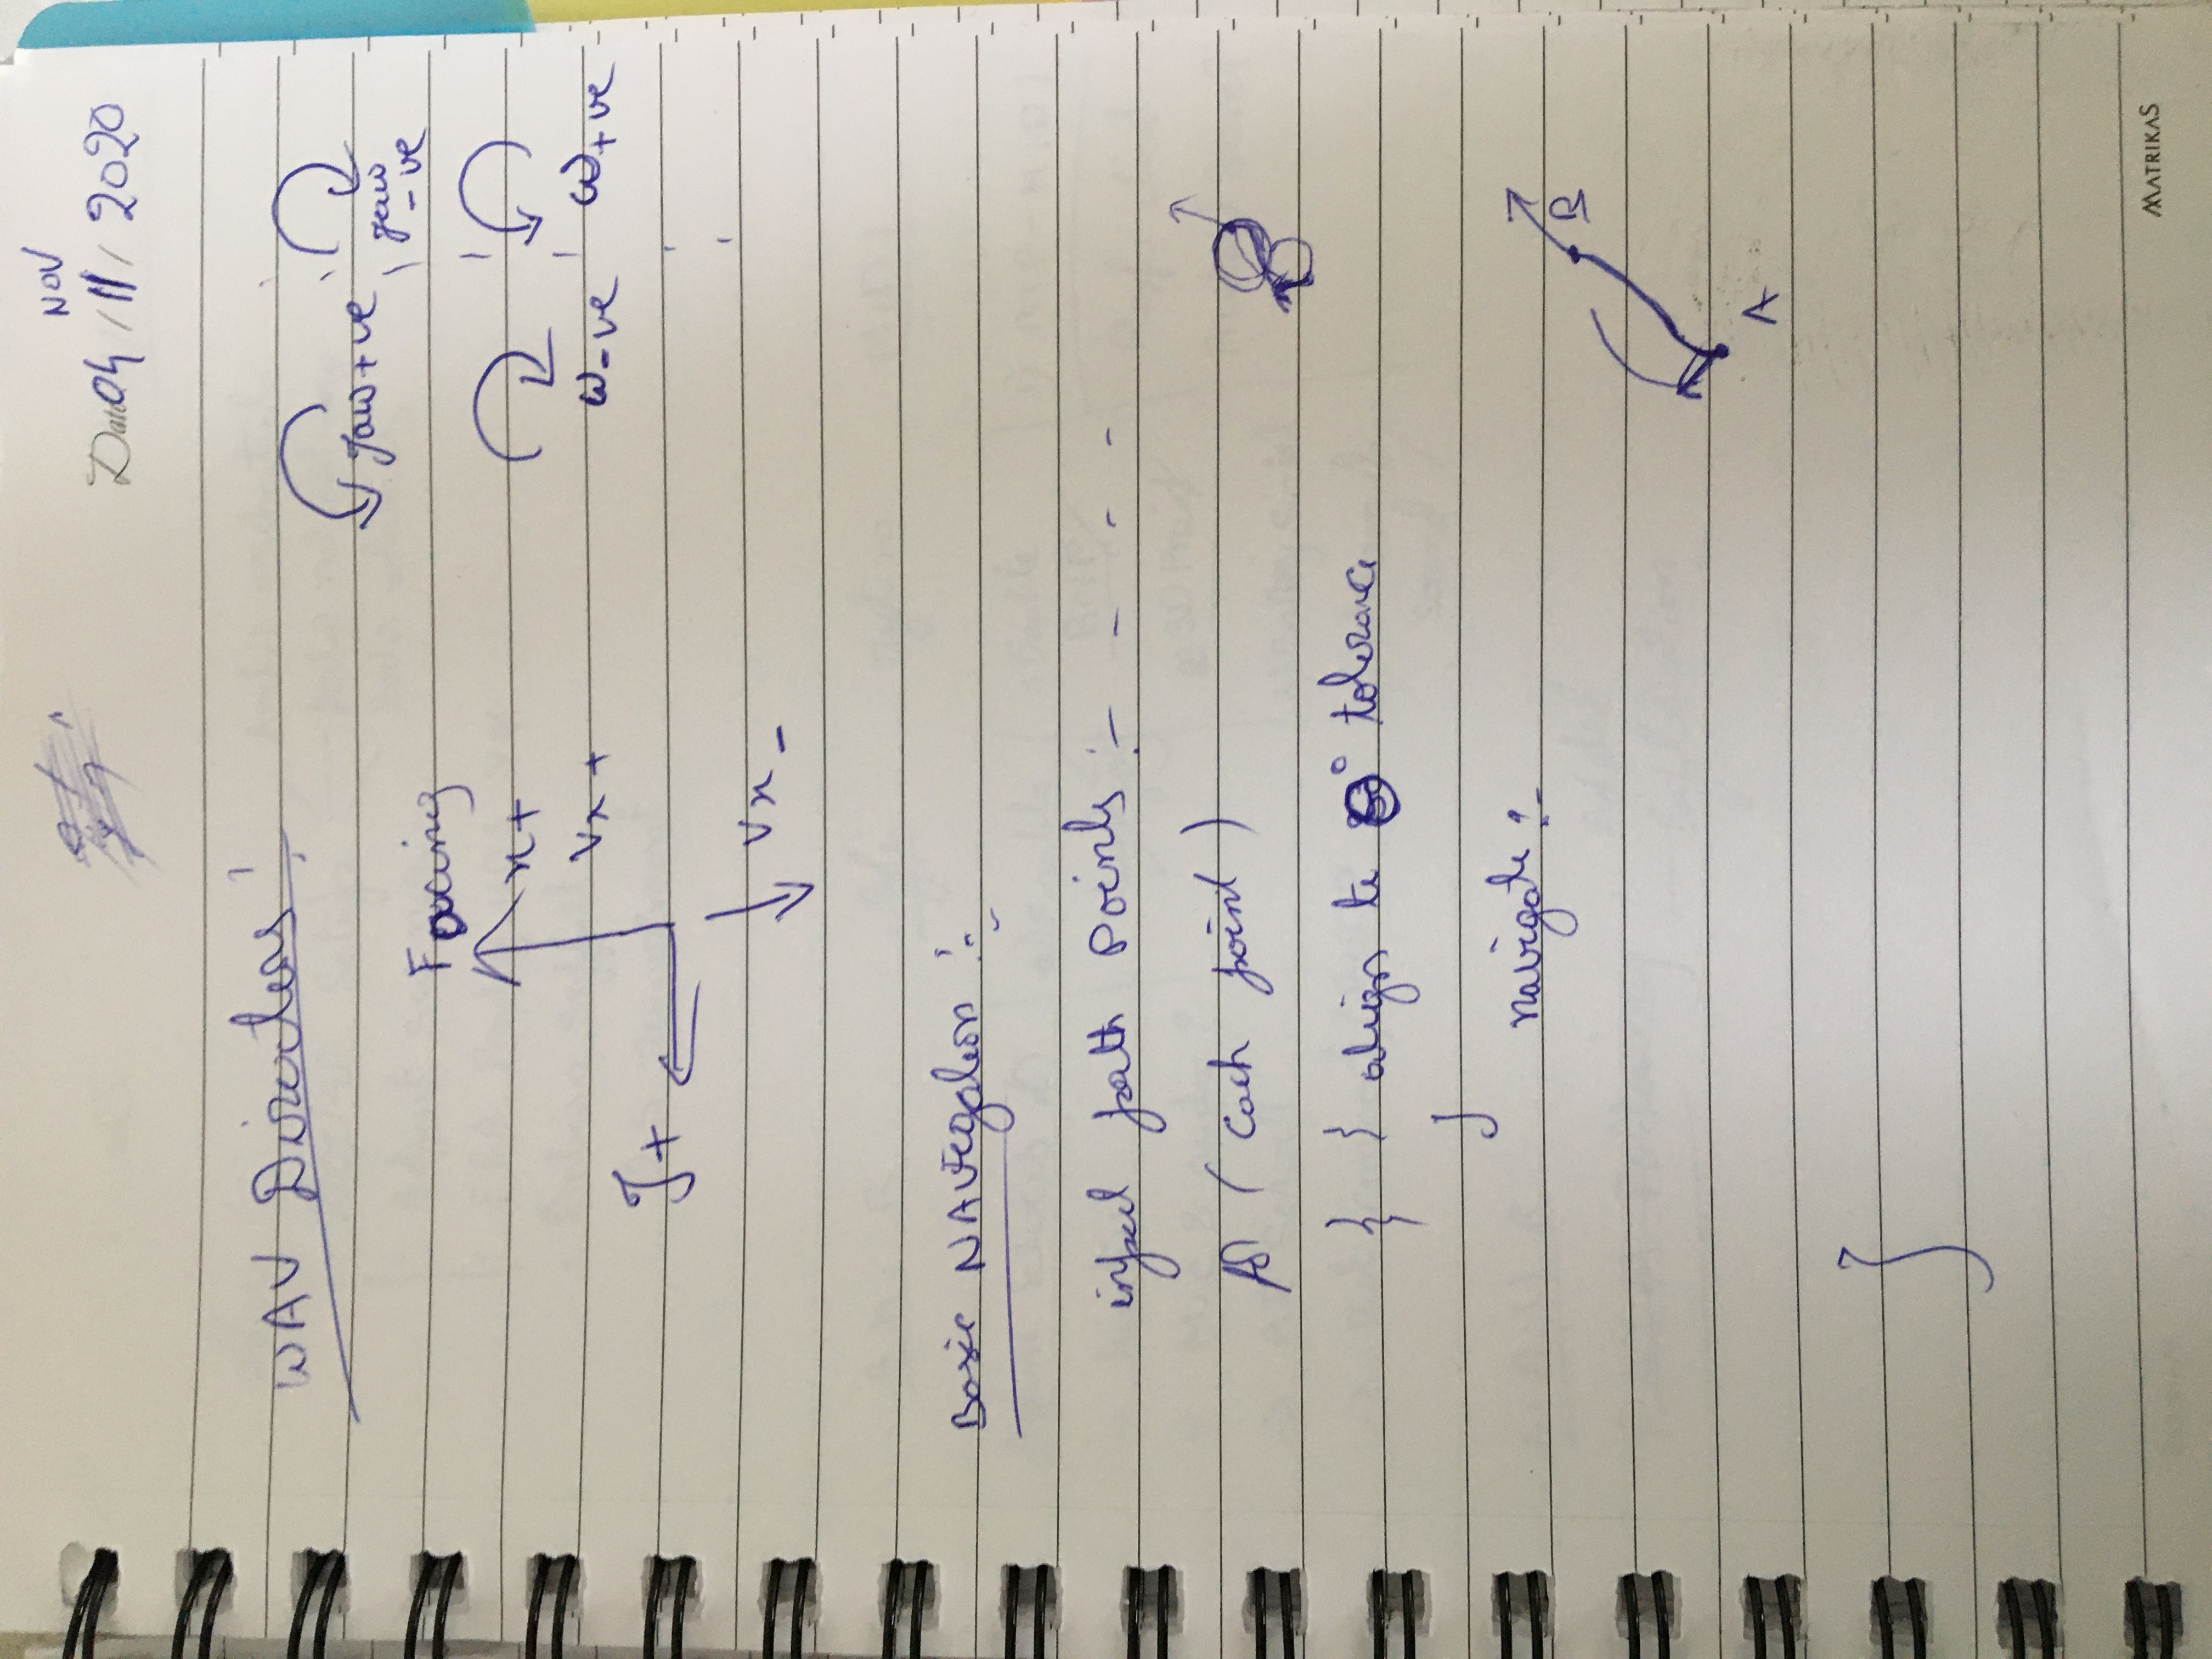 NOV
Date 04 / 11 / 2020
WAV Directions :
yaw +ve
yaw -ve
Facing
x+
Vx +
ω-ve
ω+ve
y+
Vx -
Basic NAVigation :-
input path points :- - - -
for ( each point )
{ { align to ° tolerance
}
navigate :-
B
A
}
MATRIKAS